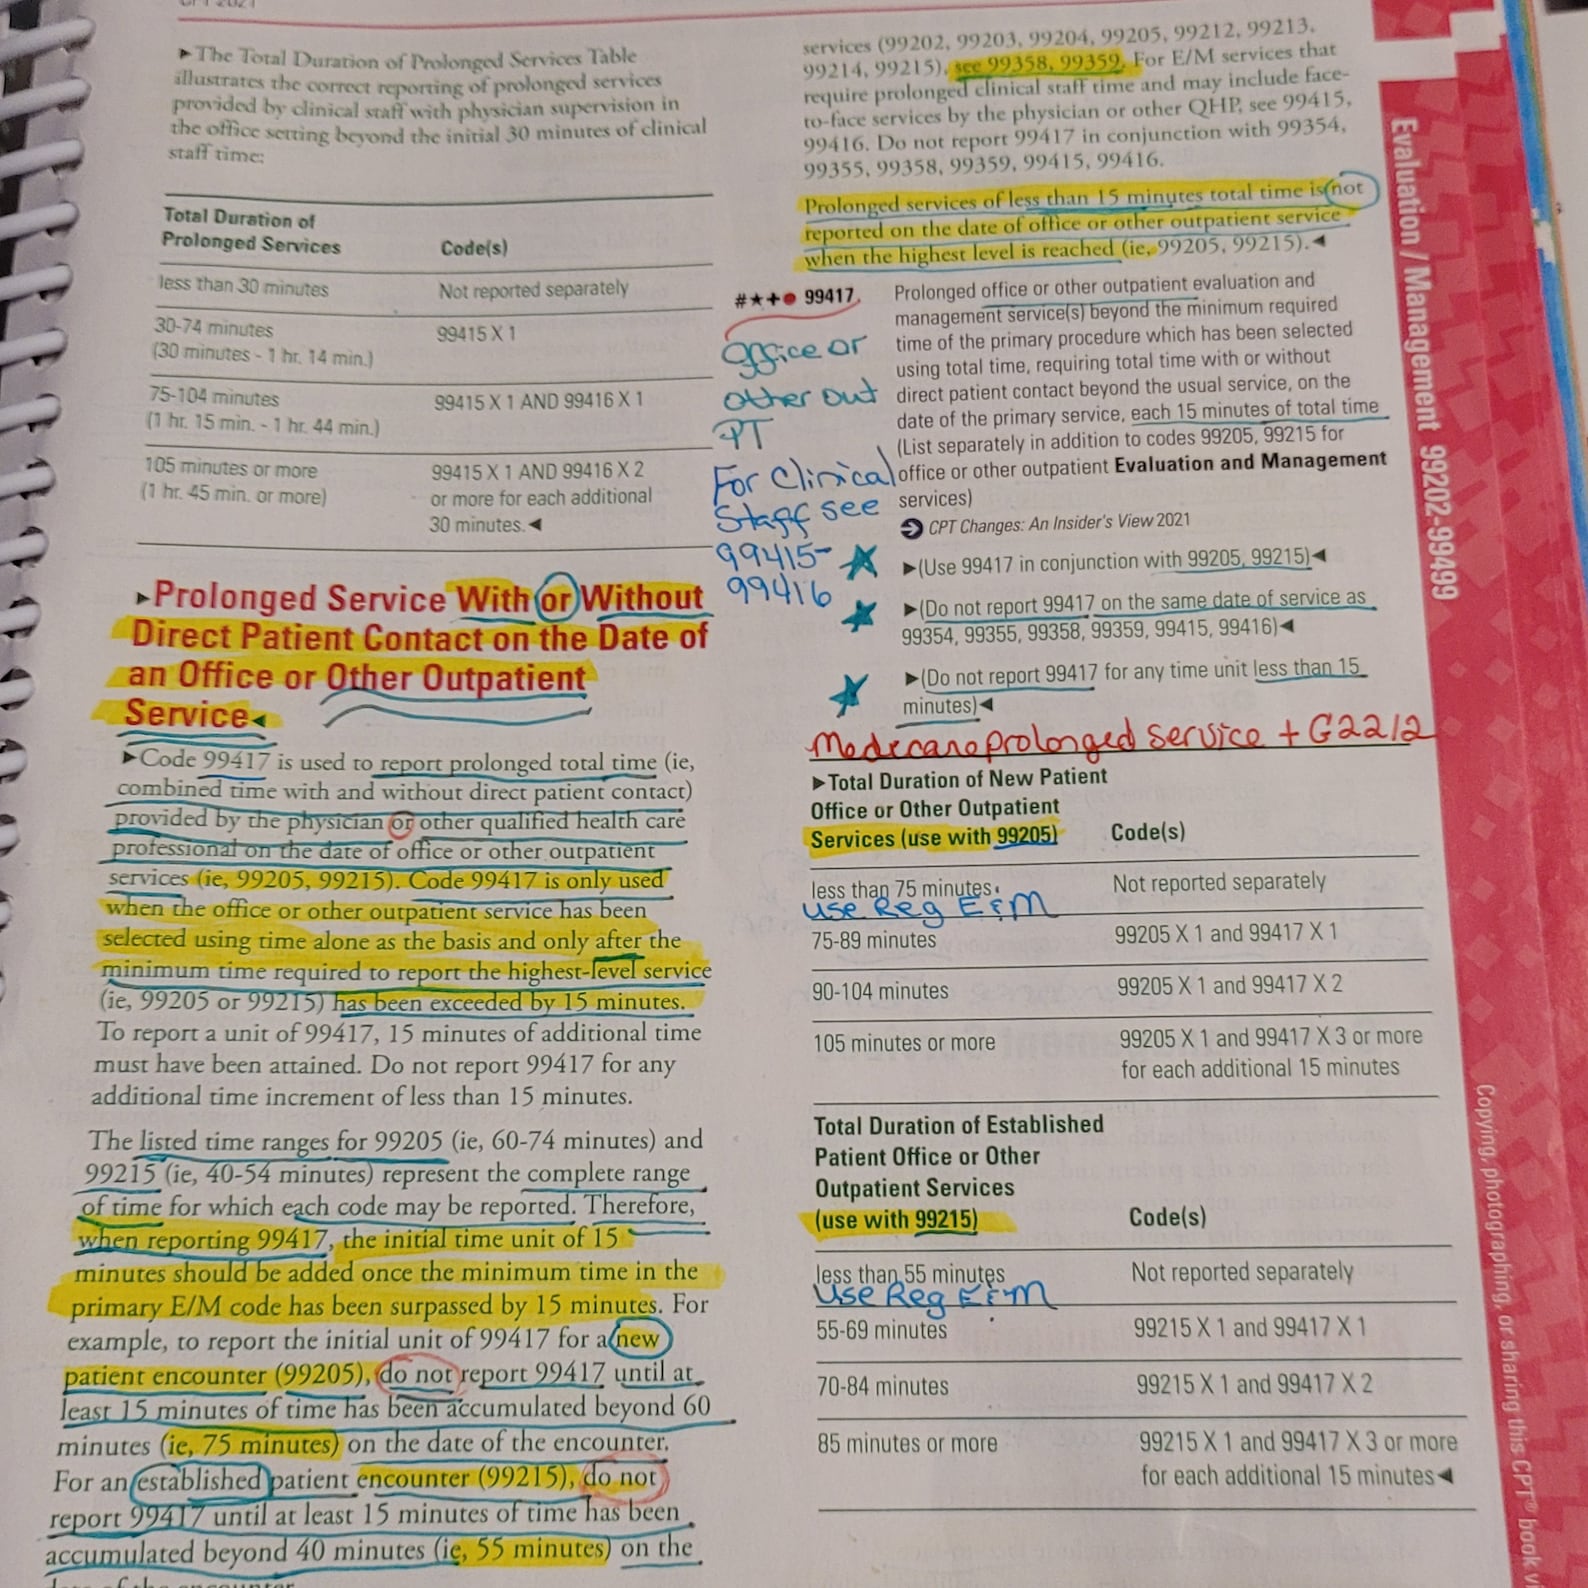 CPT 2021
►The Total Duration of Prolonged Services Table
illustrates the correct reporting of prolonged services
provided by clinical staff with physician supervision in
the office setting beyond the initial 30 minutes of clinical
staff time:
Total Duration of
Prolonged Services Code(s)
less than 30 minutes Not reported separately
30-74 minutes 99415 X 1
(30 minutes - 1 hr. 14 min.)
75-104 minutes 99415 X 1 AND 99416 X 1
(1 hr. 15 min. - 1 hr. 44 min.)
105 minutes or more 99415 X 1 AND 99416 X 2
(1 hr. 45 min. or more) or more for each additional
30 minutes.◄
►Prolonged Service With or Without
Direct Patient Contact on the Date of
an Office or Other Outpatient
Service◄
►Code 99417 is used to report prolonged total time (ie,
combined time with and without direct patient contact)
provided by the physician or other qualified health care
professional on the date of office or other outpatient
services (ie, 99205, 99215). Code 99417 is only used
when the office or other outpatient service has been
selected using time alone as the basis and only after the
minimum time required to report the highest-level service
(ie, 99205 or 99215) has been exceeded by 15 minutes.
To report a unit of 99417, 15 minutes of additional time
must have been attained. Do not report 99417 for any
additional time increment of less than 15 minutes.
The listed time ranges for 99205 (ie, 60-74 minutes) and
99215 (ie, 40-54 minutes) represent the complete range
of time for which each code may be reported. Therefore,
when reporting 99417, the initial time unit of 15
minutes should be added once the minimum time in the
primary E/M code has been surpassed by 15 minutes. For
example, to report the initial unit of 99417 for a new
patient encounter (99205), do not report 99417 until at
least 15 minutes of time has been accumulated beyond 60
minutes (ie, 75 minutes) on the date of the encounter.
For an established patient encounter (99215), do not
report 99417 until at least 15 minutes of time has been
accumulated beyond 40 minutes (ie, 55 minutes) on the
services (99202, 99203, 99204, 99205, 99212, 99213,
99214, 99215), see 99358, 99359. For E/M services that
require prolonged clinical staff time and may include face-
to-face services by the physician or other QHP, see 99415,
99416. Do not report 99417 in conjunction with 99354,
99355, 99358, 99359, 99415, 99416.
Prolonged services of less than 15 minutes total time is not
reported on the date of office or other outpatient service
when the highest level is reached (ie, 99205, 99215).◄
#★+● 99417 Prolonged office or other outpatient evaluation and
management service(s) beyond the minimum required
time of the primary procedure which has been selected
using total time, requiring total time with or without
direct patient contact beyond the usual service, on the
date of the primary service, each 15 minutes of total time
(List separately in addition to codes 99205, 99215 for
office or other outpatient Evaluation and Management
services)
CPT Changes: An Insider's View 2021
office or
other out
PT
For Clinical
Staff see
99415-
99416
►(Use 99417 in conjunction with 99205, 99215)◄
►(Do not report 99417 on the same date of service as
99354, 99355, 99358, 99359, 99415, 99416)◄
►(Do not report 99417 for any time unit less than 15
minutes)◄
Medicare prolonged service + G2212
►Total Duration of New Patient
Office or Other Outpatient
Services (use with 99205) Code(s)
less than 75 minutes Not reported separately
use Reg E&M
75-89 minutes 99205 X 1 and 99417 X 1
90-104 minutes 99205 X 1 and 99417 X 2
105 minutes or more 99205 X 1 and 99417 X 3 or more
for each additional 15 minutes
Total Duration of Established
Patient Office or Other
Outpatient Services
(use with 99215) Code(s)
less than 55 minutes Not reported separately
use Reg E&M
55-69 minutes 99215 X 1 and 99417 X 1
70-84 minutes 99215 X 1 and 99417 X 2
85 minutes or more 99215 X 1 and 99417 X 3 or more
for each additional 15 minutes◄
Evaluation / Management 99202-99499
Copying, photographing, or sharing this CPT® book